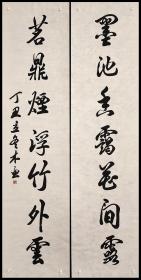 墨池香霭花间露
茗鼎烟浮竹外云
丁丑